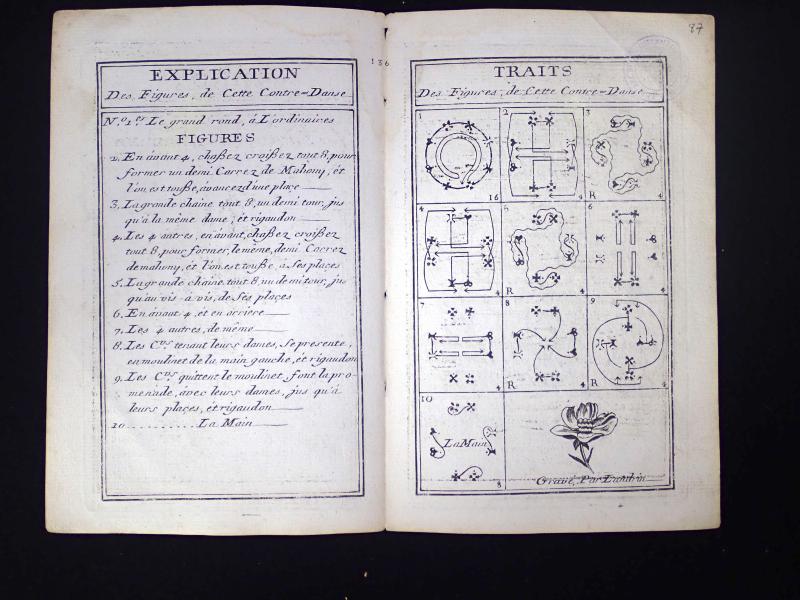 EXPLICATION
Des Figures, de Cette Contre=Danse
N.º 1.er Le grand rond, à L'ordinaires
FIGURES
2. En avant 4, chaßez croißez tout 8, pour
former un demi Carrez de Mahony, et
l'on est toußé, avancez d'une place
3. La grande chaine tout 8, un demi tour, jus
qu'a la même dame, et rigaudon
4. Les 4 autres, en avant, chaßez croißez
tout 8, pour former, le même, demi Carrez
de mahony, et l'on est toußé, à Ses places
5. La grande chaine, tout 8, un demi tour, jus
qu'au vis-à-vis, de Ses places
6. En avant 4, et en arriere
7. Les 4 autres, de même
8. Les C.rs tenant leurs dames, Se presente,
en moulinet de la main gauche, et rigaudon
9. Les C.rs quittent le moulinet, font la pro-
menade, avec leurs dames, jus qu'à
leurs places, et rigaudon
10 La Main
136
87
TRAITS
Des Figures, de Cette Contre=Danse
1
16
2
4
3
R
4
4
4
5
R
4
6
4
7
4
8
R
4
9
R
4
10
La Main
8
Gravé, Par Landrin